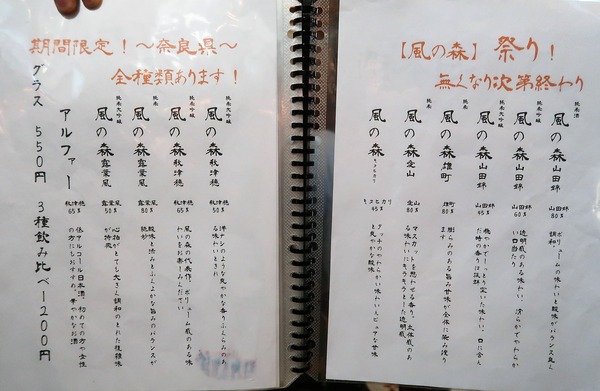 【風の森】 祭り！
無くなり次第終わり
純米酒
風の森 山田錦
山田錦 80%
ボリュームの味わいと酸味がバランス良く
調和！
純米大吟醸
風の森 山田錦
山田錦 60%
透明感のある味わい、滑らかでやわらか
い口当たり
純米大吟醸
風の森 山田錦
山田錦 45%
純米
風の森 雄町
雄町 80%
膨らみのある旨み甘味が全体に染み渡り
ます
純米
風の森 愛山
愛山 80%
マスカットを思わせる香り。立体感のあ
る味わいにキラキラとした透明感
純米大吟醸
風の森 キヌヒカリ
キヌヒカリ 45%
タッチのやわらかい味わい
と爽やかな酸味
期間限定！～奈良県～
全種類あります！
純米大吟醸
風の森 秋津穂
秋津穂 50%
洋ナシのような爽やかな香りふくらみのあ
る味わい
純米
風の森 秋津穂
秋津穂 65%
風の森の代表作、ボリューム感のある味
わいをお楽しみください
純米
風の森 露葉風
露葉風 80%
酸味と渋みとふくよかな旨みのバランスが
純米大吟醸
風の森 露葉風
露葉風 50%
心拍がとても大きく調和のとれた複雑味
が特徴
アルファー
秋津穂 65%
低アルコール日本酒、初めての方や女性
の方にもおすすめ。華やかなお酒
グラス 550円 3種飲み比べ1200円